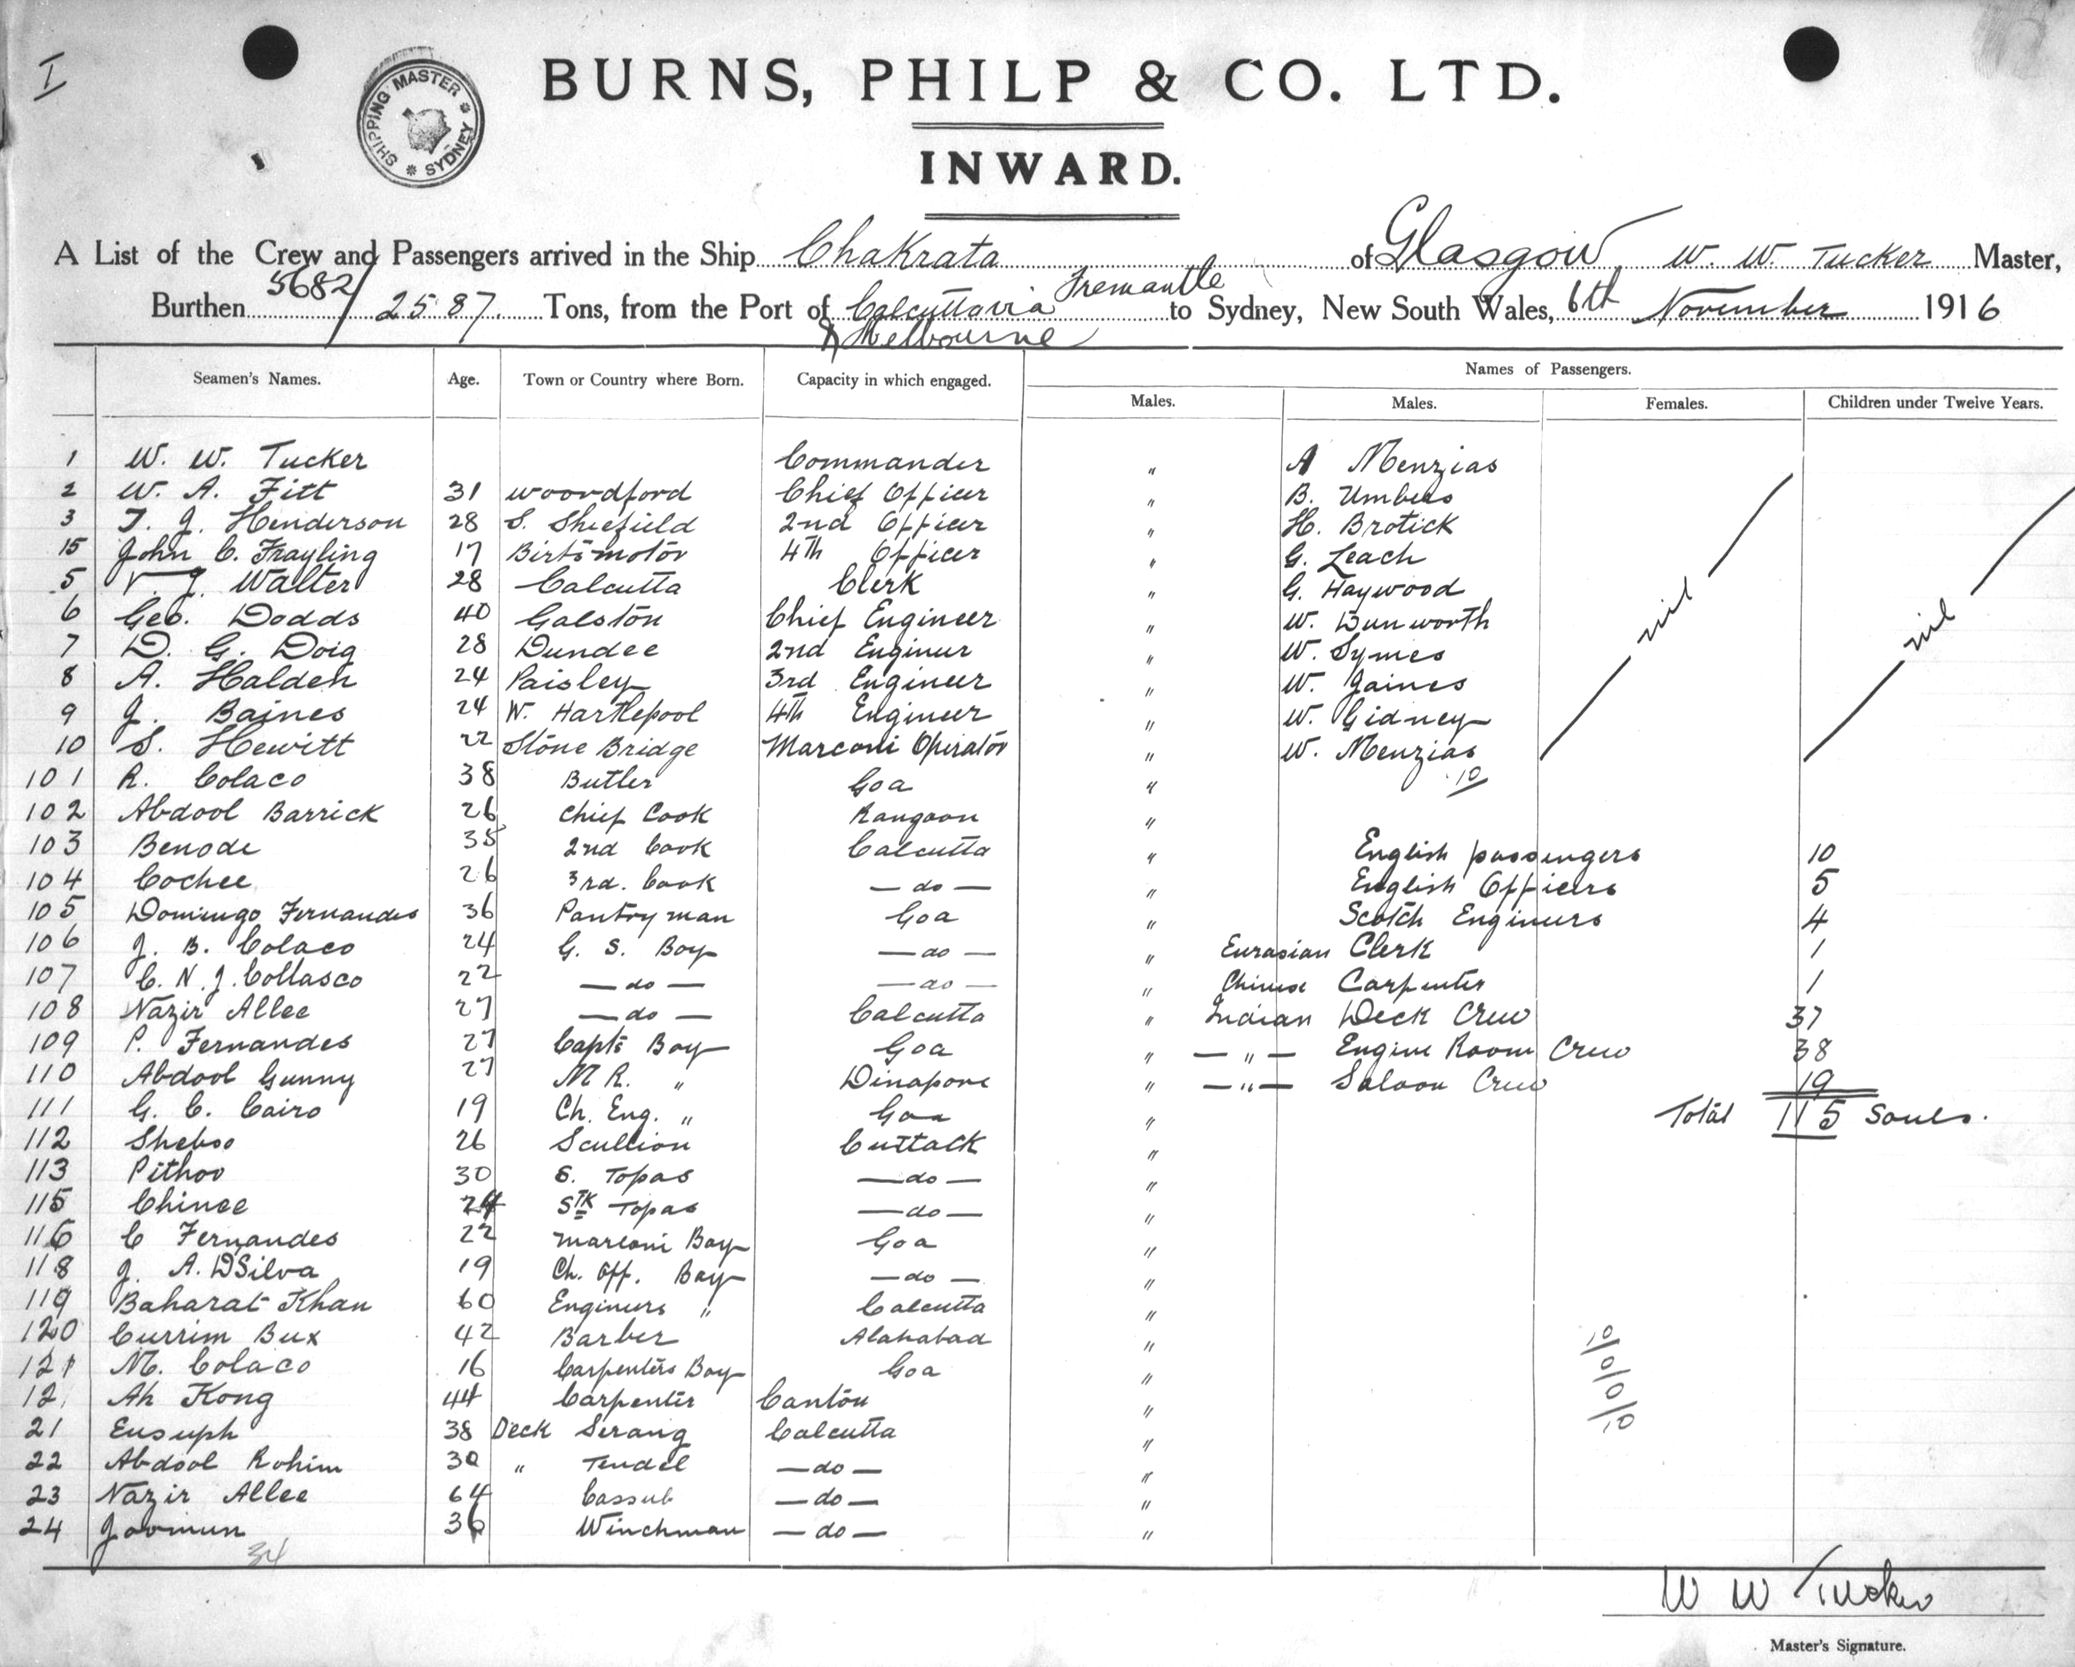 I
SHIPPING MASTER * SYDNEY *
BURNS, PHILP & CO. LTD.
INWARD.
A List of the Crew and Passengers arrived in the Ship Chakrata of Glasgow W. W. Tucker Master,
Burthen 5682/2587 Tons, from the Port of Calcutta via Fremantle to Sydney, New South Wales, 6th November 1916
& Melbourne
Names of Passengers.
Seamen's Names. Age. Town or Country where Born. Capacity in which engaged. Males. Males. Females. Children under Twelve Years.
1 W. W. Tucker Commander " A Menzias
2 W. A. Fitt 31 Woordford Chief Officer " B. Umbers
3 T. J. Henderson 28 S. Shiefield 2nd Officer " H. Brotick
15 John C. Frayling 17 Birtsmotor 4th Officer " G. Leach
5 V. J. Walter 28 Calcutta Clerk " G. Haywood
6 Geo. Dodds 40 Galston Chief Engineer " W. Bunworth nil nil
7 D. G. Doig 28 Dundee 2nd Engineer " W. Symes
8 A. Halden 24 Paisley 3rd Engineer " W. Jaines
9 J. Baines 24 W. Hartlepool 4th Engineer " W. Gidney
10 S. Hewitt 22 Stone Bridge Marconi Operator " W. Menzias
101 R. Colaco 38 Butler Goa " 10
102 Abdool Barrick 26 Chief Cook Rangoon "
103 Benode 35 2nd Cook Calcutta " English passengers 10
104 Cochee 26 3rd. Cook — do — " English Officers 5
105 Domingo Fernandes 36 Pantryman Goa " Scotch Engineers 4
106 J. B. Colaco 24 G. S. Boy — do — " Eurasian Clerk 1
107 C. N. J. Collasco 22 — do — — do — " Chinese Carpenter 1
108 Nazir Allee 27 — do — Calcutta " Indian Deck Crew 37
109 P. Fernandes 27 Capts Boy Goa " — " — Engine Room Crew 38
110 Abdool Gunny 27 M R. " Dinapore " — " — Saloon Crew 19
111 G. C. Cairo 19 Ch. Eng. " Goa " Total 115 Souls.
112 Sheboo 26 Scullion Cuttack "
113 Pithoo 30 S. Topas — do — "
115 Chinee 24 STK Topas — do — "
116 C Fernandes 22 Marconi Boy Goa "
118 J. A. DSilva 19 Ch. Off. Boy — do — "
119 Baharat Khan 60 Engineers " Calcutta "
120 Currim Bux 42 Barber Alahabad "
121 M. Colaco 16 Carpenters Boy Goa "
12 Ah Kong 44 Carpenter Canton "
21 Eusuph 38 Deck Serang Calcutta "
22 Abdool Rohim 30 " Tendel — do — "
23 Nazir Allee 64 Cassub — do — "
24 Joomun 36 Winchman — do — "
34
W W Tucker
Master's Signature.